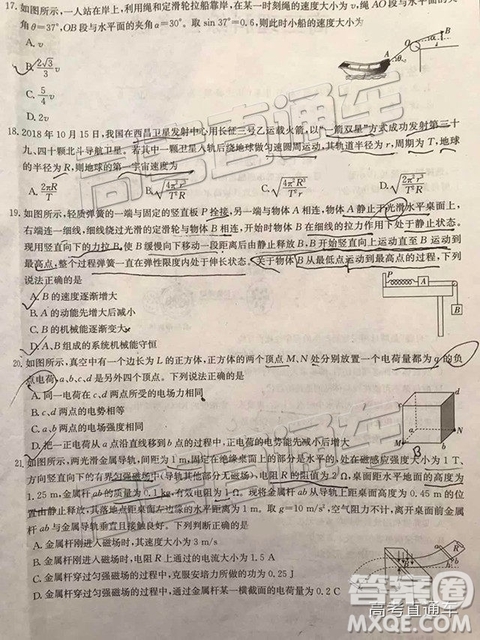 17. 如图所示,一人站在岸上,利用绳和定滑轮拉船靠岸,在某一时刻绳的速度大小为v,绳AO段与水平面的夹
角θ=37°,OB段与水平面的夹角α=30°。取sin 37°=0.6,则此时小船的速度大小为
A. v
B. 2√3/3 v
C. 5/4 v
D. 2v
18. 2018年10月15日,我国在西昌卫星发射中心用长征三号乙运载火箭,以“一箭双星”方式成功发射第三十
九、四十颗北斗导航卫星。若其中一颗卫星入轨后绕地球做匀速圆周运动,其轨道半径为r,周期为T,地球
的半径为R,则地球的第一宇宙速度为
A. 2πR/T
B. √(4π²r³/T²R)
C. √(4π²R³/T²r)
D. √(2πr³/T²R)
19. 如图所示,轻质弹簧的一端与固定的竖直板P拴接,另一端与物体A相连,物体A静止于光滑水平桌面上,
右端连一细线,细线绕过光滑的定滑轮与物体B相连。开始时用手托住B,让细线的拉力作用下处于静止状态。
现用竖直向下的力拉B,使B缓慢向下移动一段距离后由静止释放B,B开始竖直向上运动直至B运动到
最高点,整个过程弹簧一直在弹性限度内处于伸长状态。关于物体B从最低点运动到最高点的过程,下列
说法正确的是
A. B的速度逐渐增大
B. A的动能先增大后减小
C. B的机械能逐渐变大
D. A、B组成的系统机械能守恒
20. 如图所示,真空中有一个边长为L的正方体,正方体的两个顶点M、N处分别放置一个电荷量都为q的负
点电荷,a、b、c、d是另外四个顶点。下列说法正确的是
A. c、d两点的电场力相同
B. c、d两点的电势相等
C. a、b两点的电场强度大小相等
D. 把正电荷从a点沿直线移到b点的过程中,正电荷的电势能先减小后增大
21. 如图所示,两光滑金属导轨,间距为1 m,固定在绝缘桌面上的部分是水平的,处在磁感应强度大小为1 T、
方向竖直向下的有界匀强磁场中(导轨其他部分无磁场),电阻R的阻值为2 Ω,桌面距水平地面的高度为
1.25 m,金属杆ab的质量为0.1 kg,有效电阻为1 Ω。现将金属杆ab从导轨上距桌面高度为0.45 m的位
置由静止释放,其落地点距桌面左边缘的水平距离为1 m。取g=10 m/s²,空气阻力不计,离开桌面前金属
杆ab与金属导轨垂直且接触良好。下列判断正确的是
A. 金属杆刚进入磁场时,其速度大小为3 m/s
B. 金属杆刚进入磁场时,电阻R上通过的电流大小为1.5 A
C. 金属杆穿过匀强磁场的过程中,克服安培力所做的功为0.25 J
D. 金属杆穿过匀强磁场的过程中,通过金属杆某一横截面的电荷量为0.2 C
高考直通车
答案圈
高考直通车